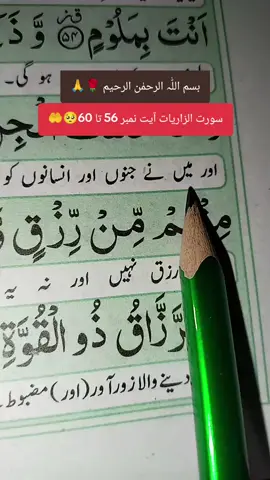 اَنْتَ بِمَلُوْمٍ ﴿۵۴﴾ وَّ ذَ
بسم اللہ الرحمٰن الرحیم 🌹🙏
ہو گی۔
سورت الزاریات آیت نمبر 56 تا 60🥺🤲
اور میں نے جنوں اور انسانوں کو
مِنْهُمْ مِّنْ رِّزْقٍ وَّ
رزق نہیں اور نہ یہ
رَّزَّاقُ ذُو الْقُوَّةِ
دینے والا زور آور (اور) مضبوط